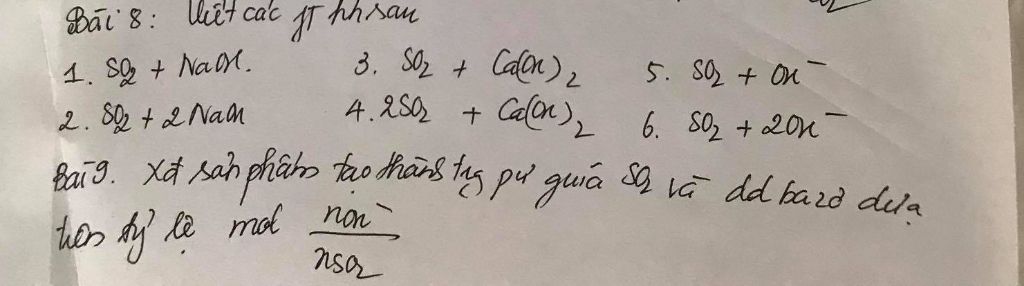 Bài 8: Viết các PT hh sau
1. SO2 + NaOH. 3. SO2 + Ca(OH)2 5. SO2 + OH⁻
2. SO2 + 2NaOH 4. 2SO2 + Ca(OH)2 6. SO2 + 2OH⁻
Bài 9. Xđ sản phẩm tạo thành trg pư giữa SO2 và dd bazơ dựa
trên tỷ lệ mol nOH⁻/nSO2